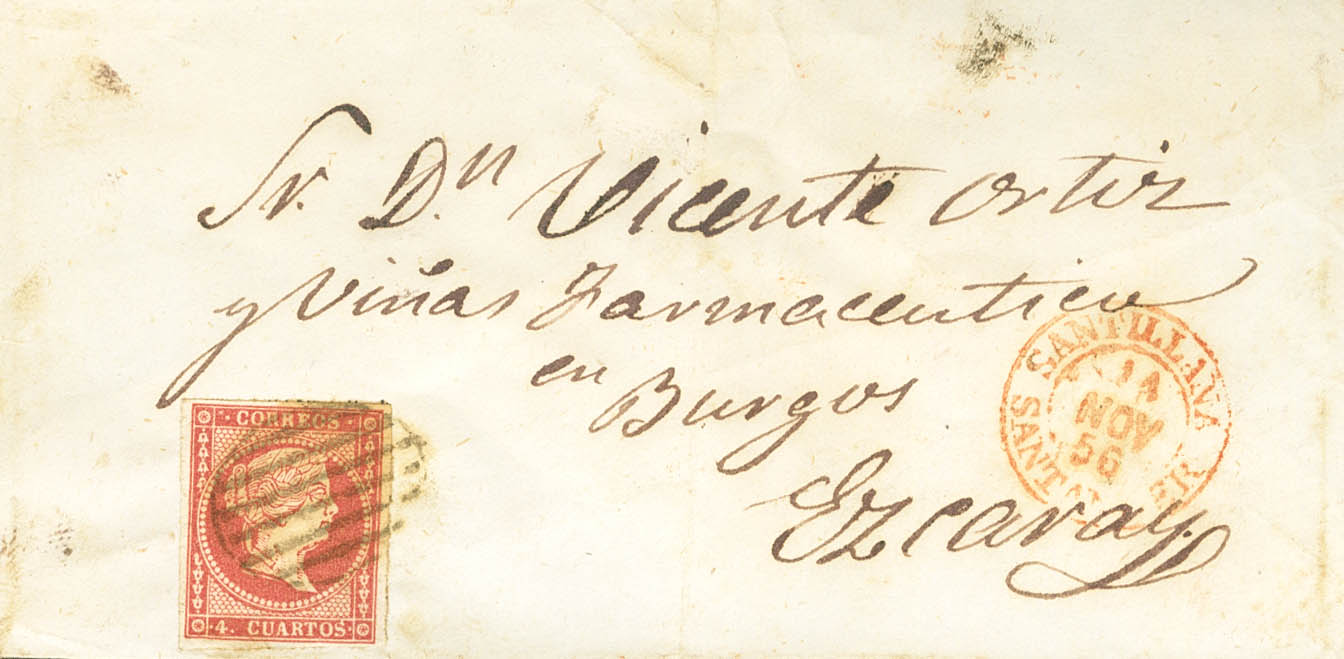 Sr. Dn Vicente Ortiz
y Viñas Farmaceutico
en
Burgos
Ezcaray.
CORREOS
4. CUARTOS
SANTILLANA
14
NOV
56
SANTANDER